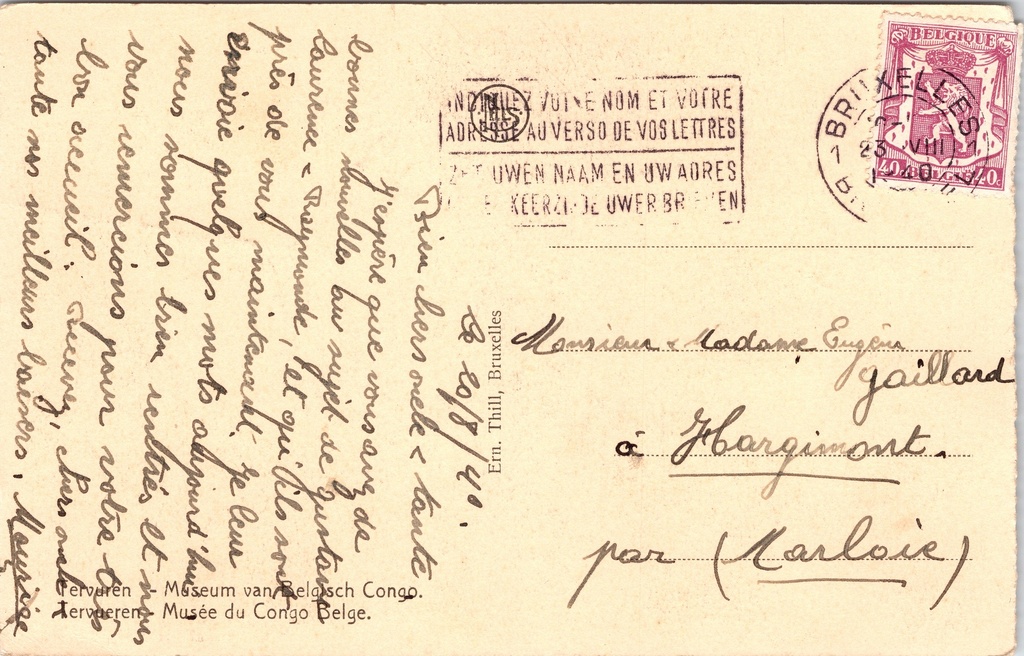 Le 20/8/40.
Bien chers oncle & tante.
J'espère que vous avez de
bonnes nouvelles au sujet de Gustave
Laurence & Raymonde, et qu'ils sont
près de vous maintenant. Je leur
envoie quelques mots aujourd'hui
nous sommes bien rentrés et nous
vous remercions pour votre très
bon acceuil. Recevez, chers oncle &
tante nos meilleurs baisers. Maurice
Tervuren - Museum van Belgisch Congo.
Tervueren - Musée du Congo Belge.
Ern. Thill, Bruxelles
NELS
INDIQUEZ VOTRE NOM ET VOTRE
ADRESSE AU VERSO DE VOS LETTRES
ZET UWEN NAAM EN UW ADRES
KEERZIJDE UWER BRIEVEN
BRUXELLES
1 1
23 VIII
40
BELGIQUE
40c BELGIË 40c
Monsieur & Madame Eugène
Gaillard
à Hargimont.
par (Marloie)